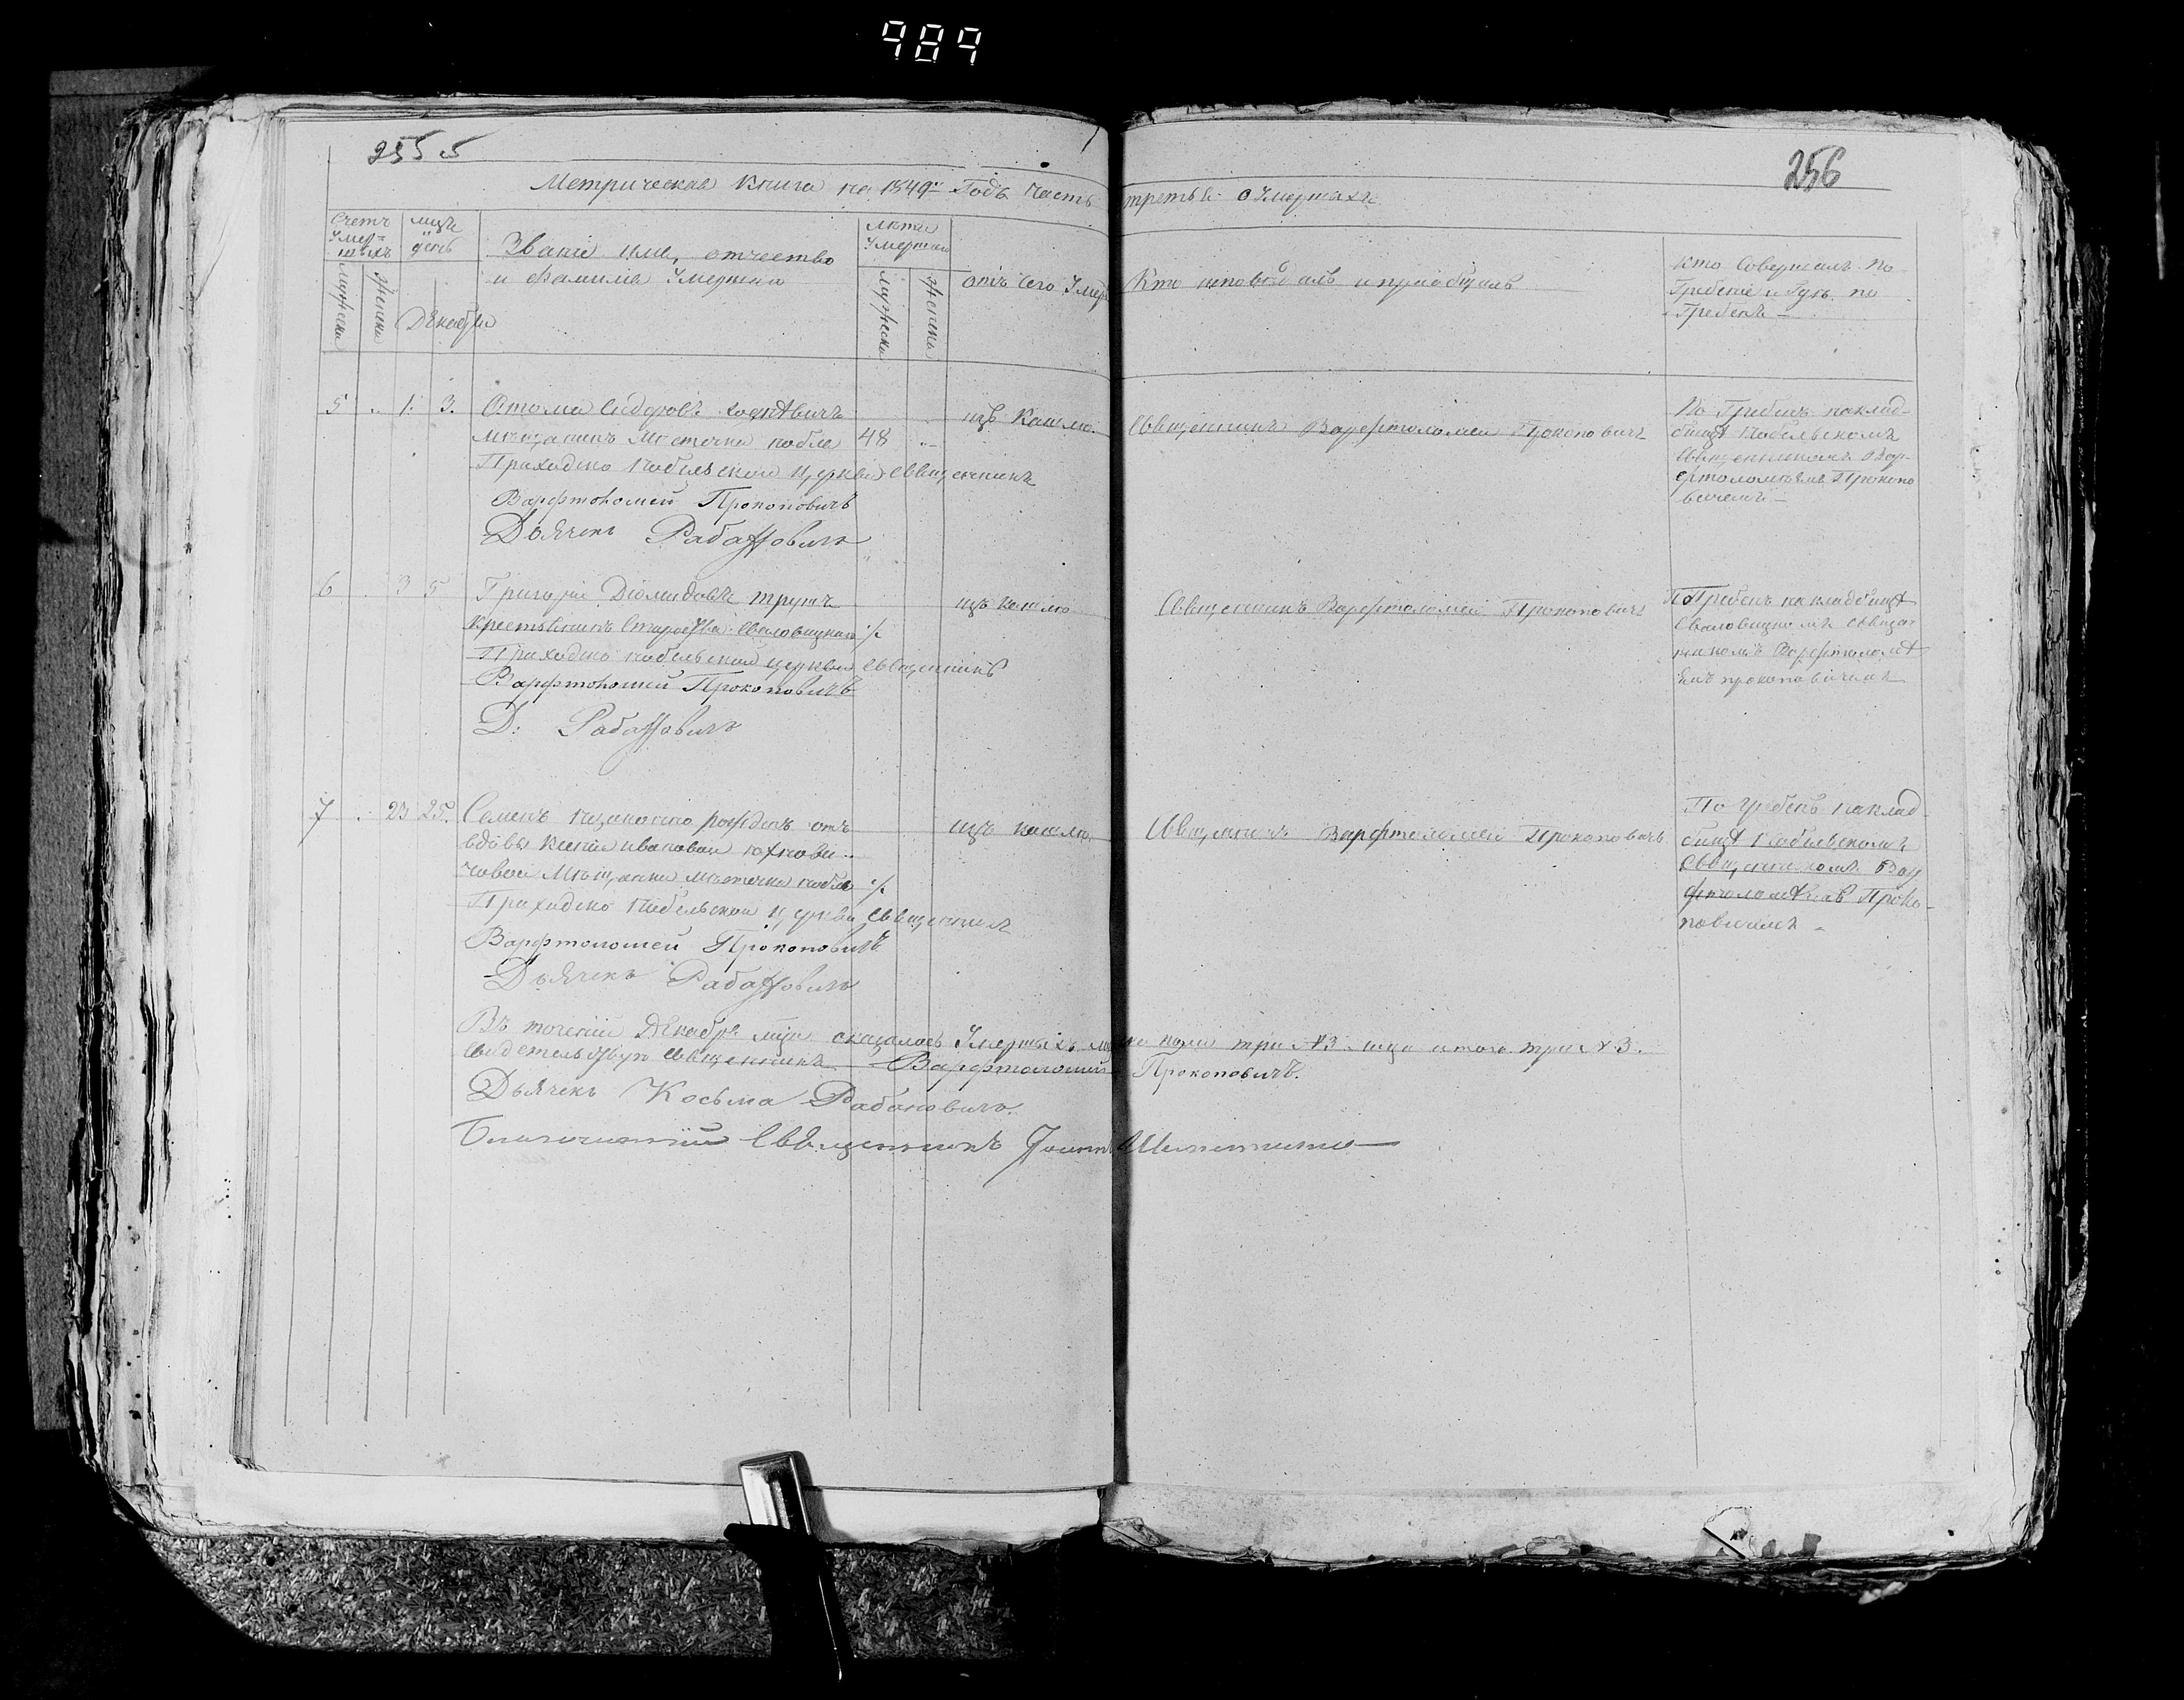 989
255 5
256
Метрическая Книга на 1849й Годъ Часть третья о Умершихъ
Счетъ Умер=шихъ
мужеска
женска
мцъ день
Декабря
Званiе имя, отчество
и фамилiя Умершаго
лета Умершаго
мужеска
женска
отъ чего Умеръ
Кто исповедалъ и прiобщалъ
Кто Совершалъ по-
Гребенiе и Гдъ по
Гребенъ —
5 1. 3. Сидоровъ
мещанинъ местечка нобля 48
Прихадско Нобельской Церкви Священникъ
Варфтоломей Прокоповичъ
Дьячекъ
изъ Кашлю.
Священникъ Варфтоломей Прокоповичъ
По Гребенъ наклад-
бищѣ Нобельскомъ
Священникомъ Вар-
фтоломѣемъ Прокопо
вичемъ —
6 3 5 Григорiй Дiомидовъ
Крестьянинъ Староства Сваловицкаго ./.
Прихадско нобельской церкви Священникъ
Варфтоломей Прокоповичъ
Д:
изъ кашлю
Священникъ Варфтоломей Прокоповичъ
ПоГребенъ накладбищѣ
Сваловицкомъ Священ
никомъ Варфтоломѣ
емъ прокоповичемъ
7 23 25. Семенъ рожденъ отъ
вдовы Ксенiи ивановой
мещанки местечка нобля ./.
Прихадско Нобельской Церкви Священникъ
Варфтоломей Прокоповичъ
Дьячекъ
изъ кашлю.
Священникъ Варфтоломей Прокоповичъ
По гребенъ наклад
бищѣ Нобельскомъ
Священникомъ Вар
фтоломѣемъ Проко-
повичемъ
Въ теченiи Декабря мца оказалось Умершихъ муже пола три №3 итого три №3.
Свидетельствую Священникъ — Варфтоломей Прокоповичъ.
Дьячекъ Косьма Рабановичъ.
Благочинный Священникъ